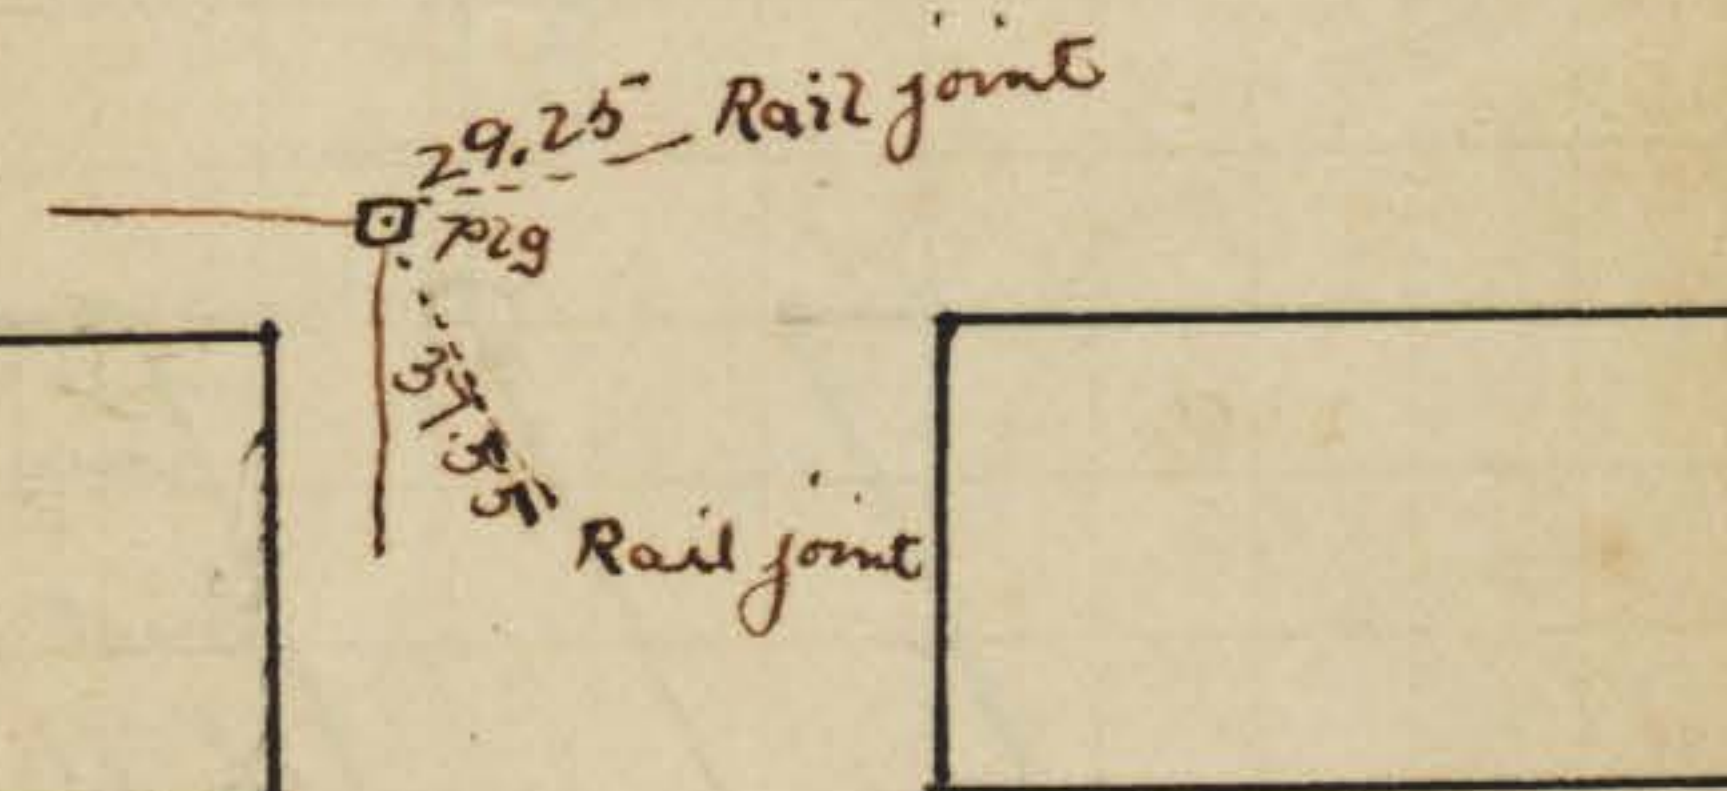 29.25 Rail joint
Plg
37.35
Rail joint